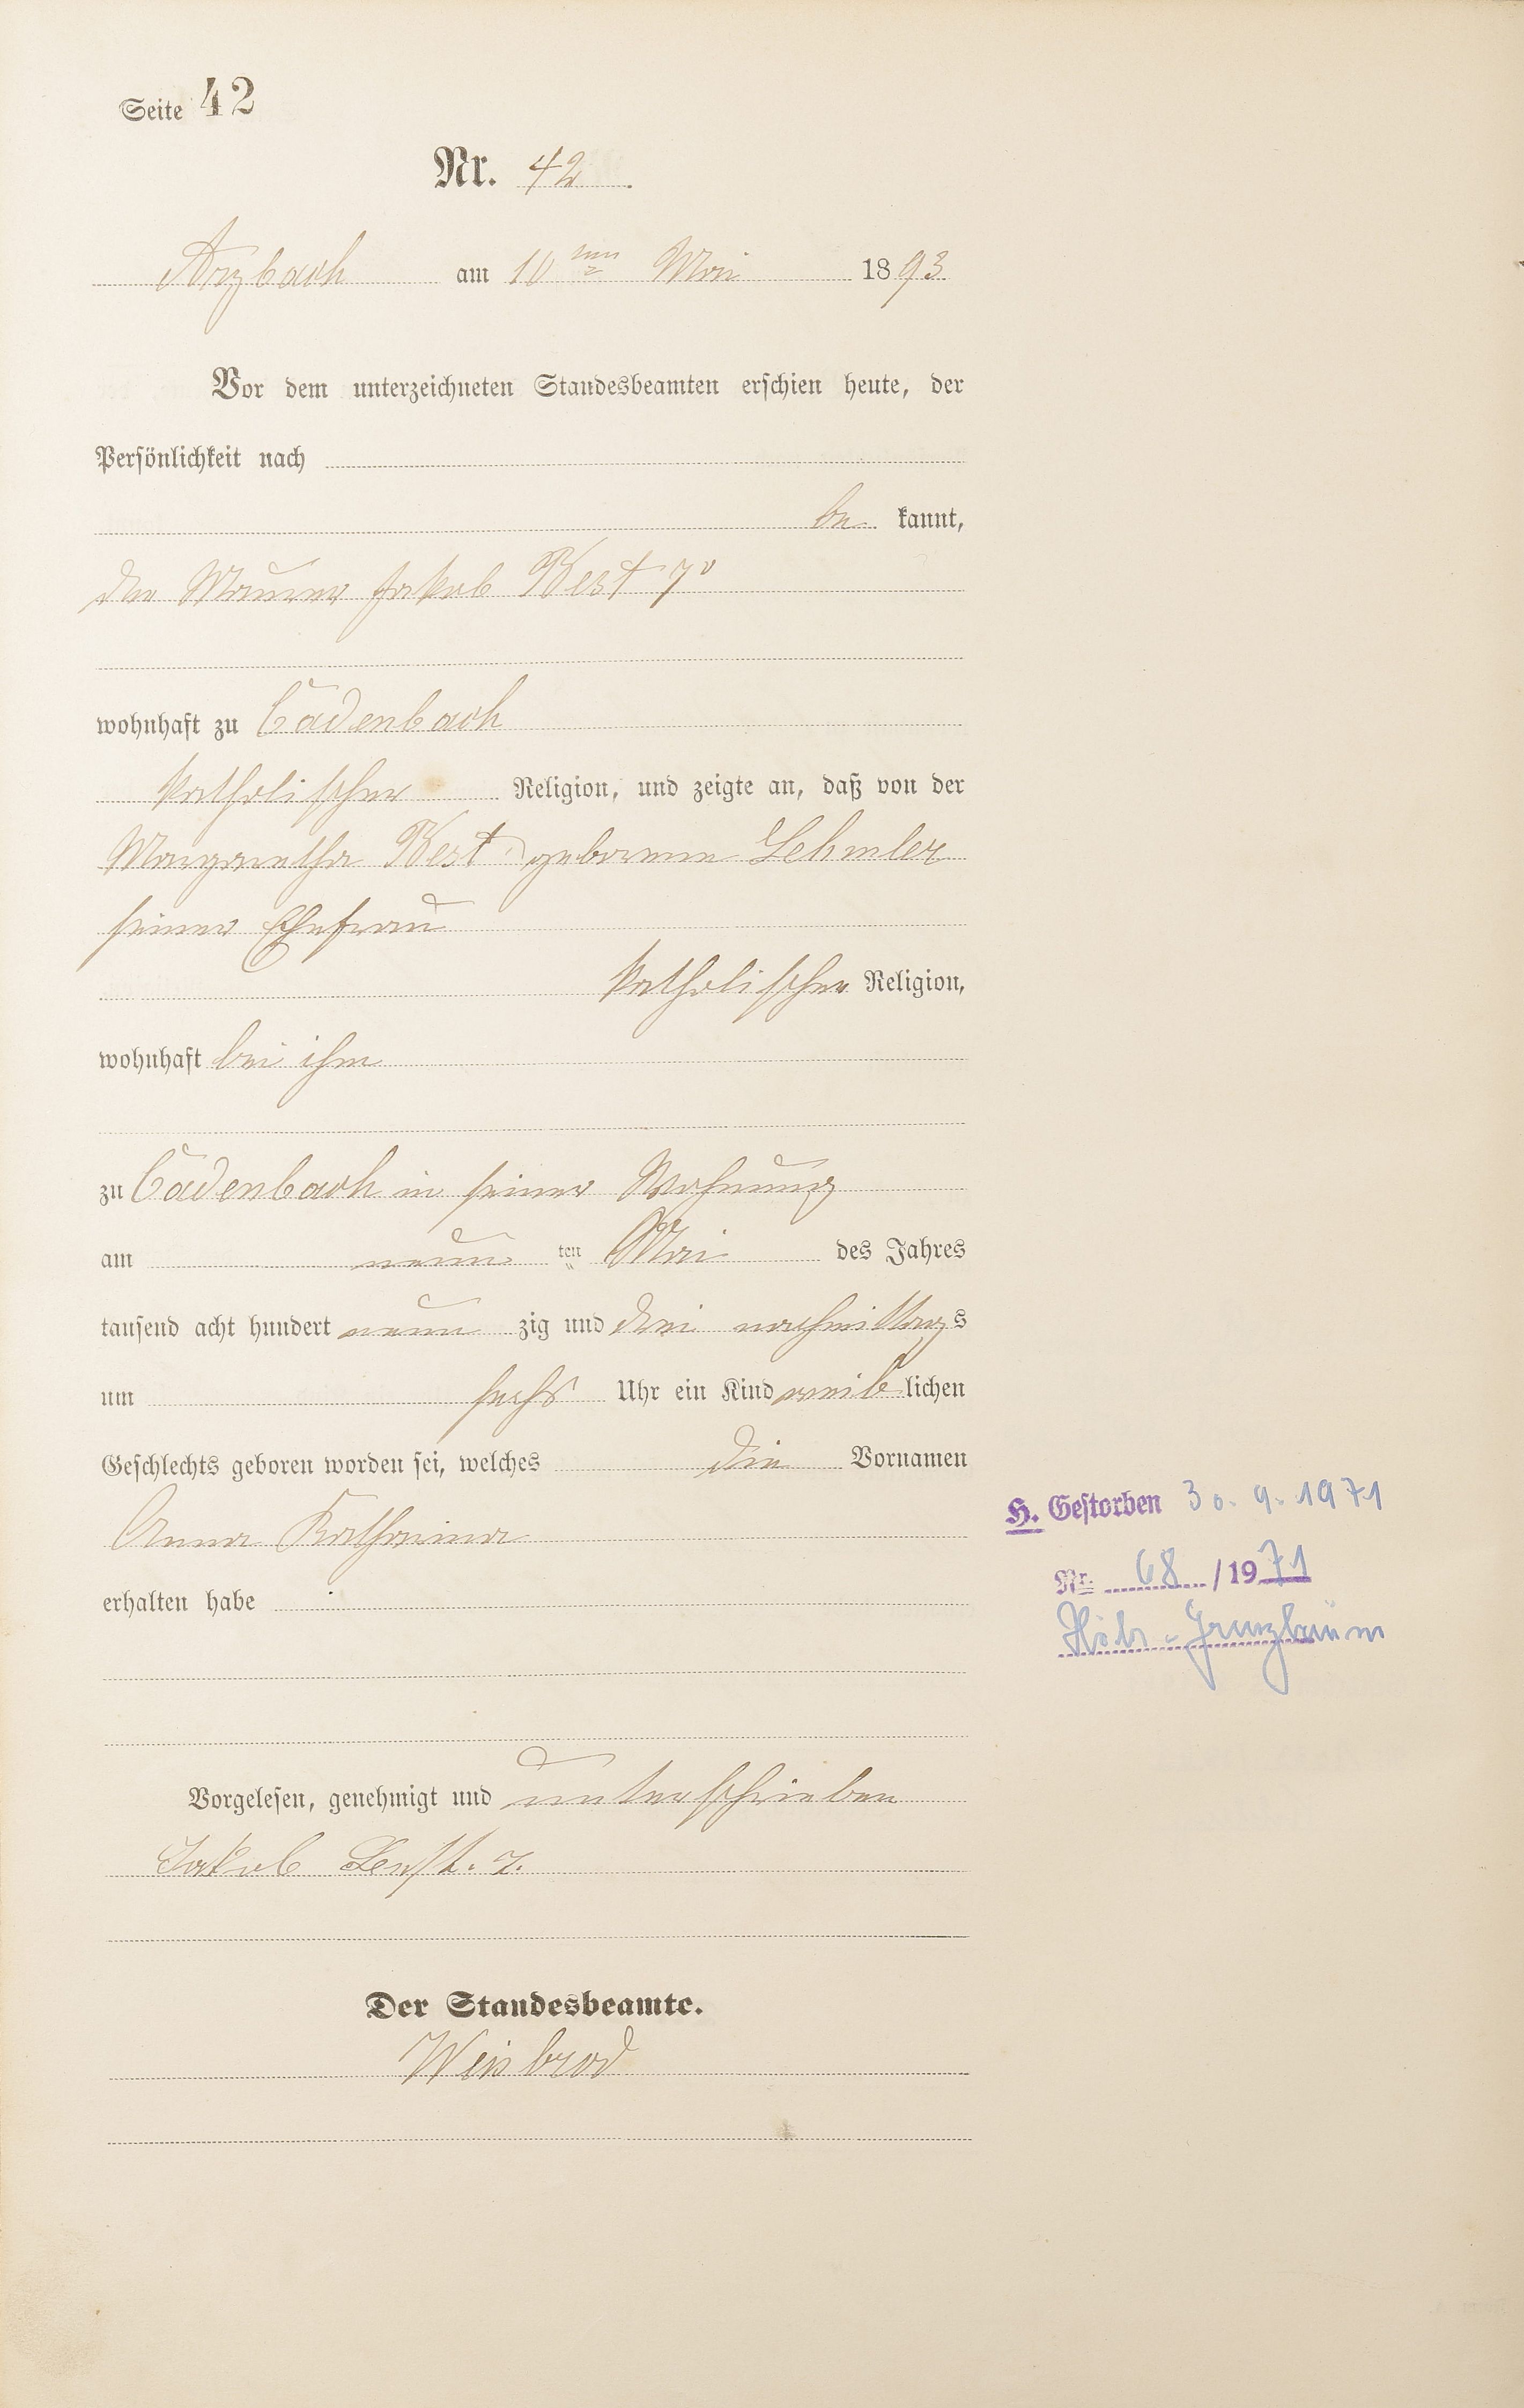 Seite 42
Nr. 42.
Arzbach am 10ten Mai 1893
Vor dem unterzeichneten Standesbeamten erschien heute, der
Persönlichkeit nach
be kannt,
der Maurer Jakob Best 7r
wohnhaft zu Cadenbach
katholischer Religion, und zeigte an, daß von der
Margaretha Best geborenen Lehmler
seiner Ehefrau
katholischer Religion,
wohnhaft bei ihm
zu Cadenbach in seiner Wohnung
am neun ten Mai des Jahres
tausend acht hundert neun zig und drei nachmittags
um sechs Uhr ein Kind weiblichen
Geschlechts geboren worden sei, welches die Vornamen
Anna Katharina
erhalten habe
Vorgelesen, genehmigt und unterschrieben
Jakob Best. 7.
Der Standesbeamte.
Weisbrod
H. Gestorben 30.9.1971
Nr. 68/1971
Höhr-Grenzhausen